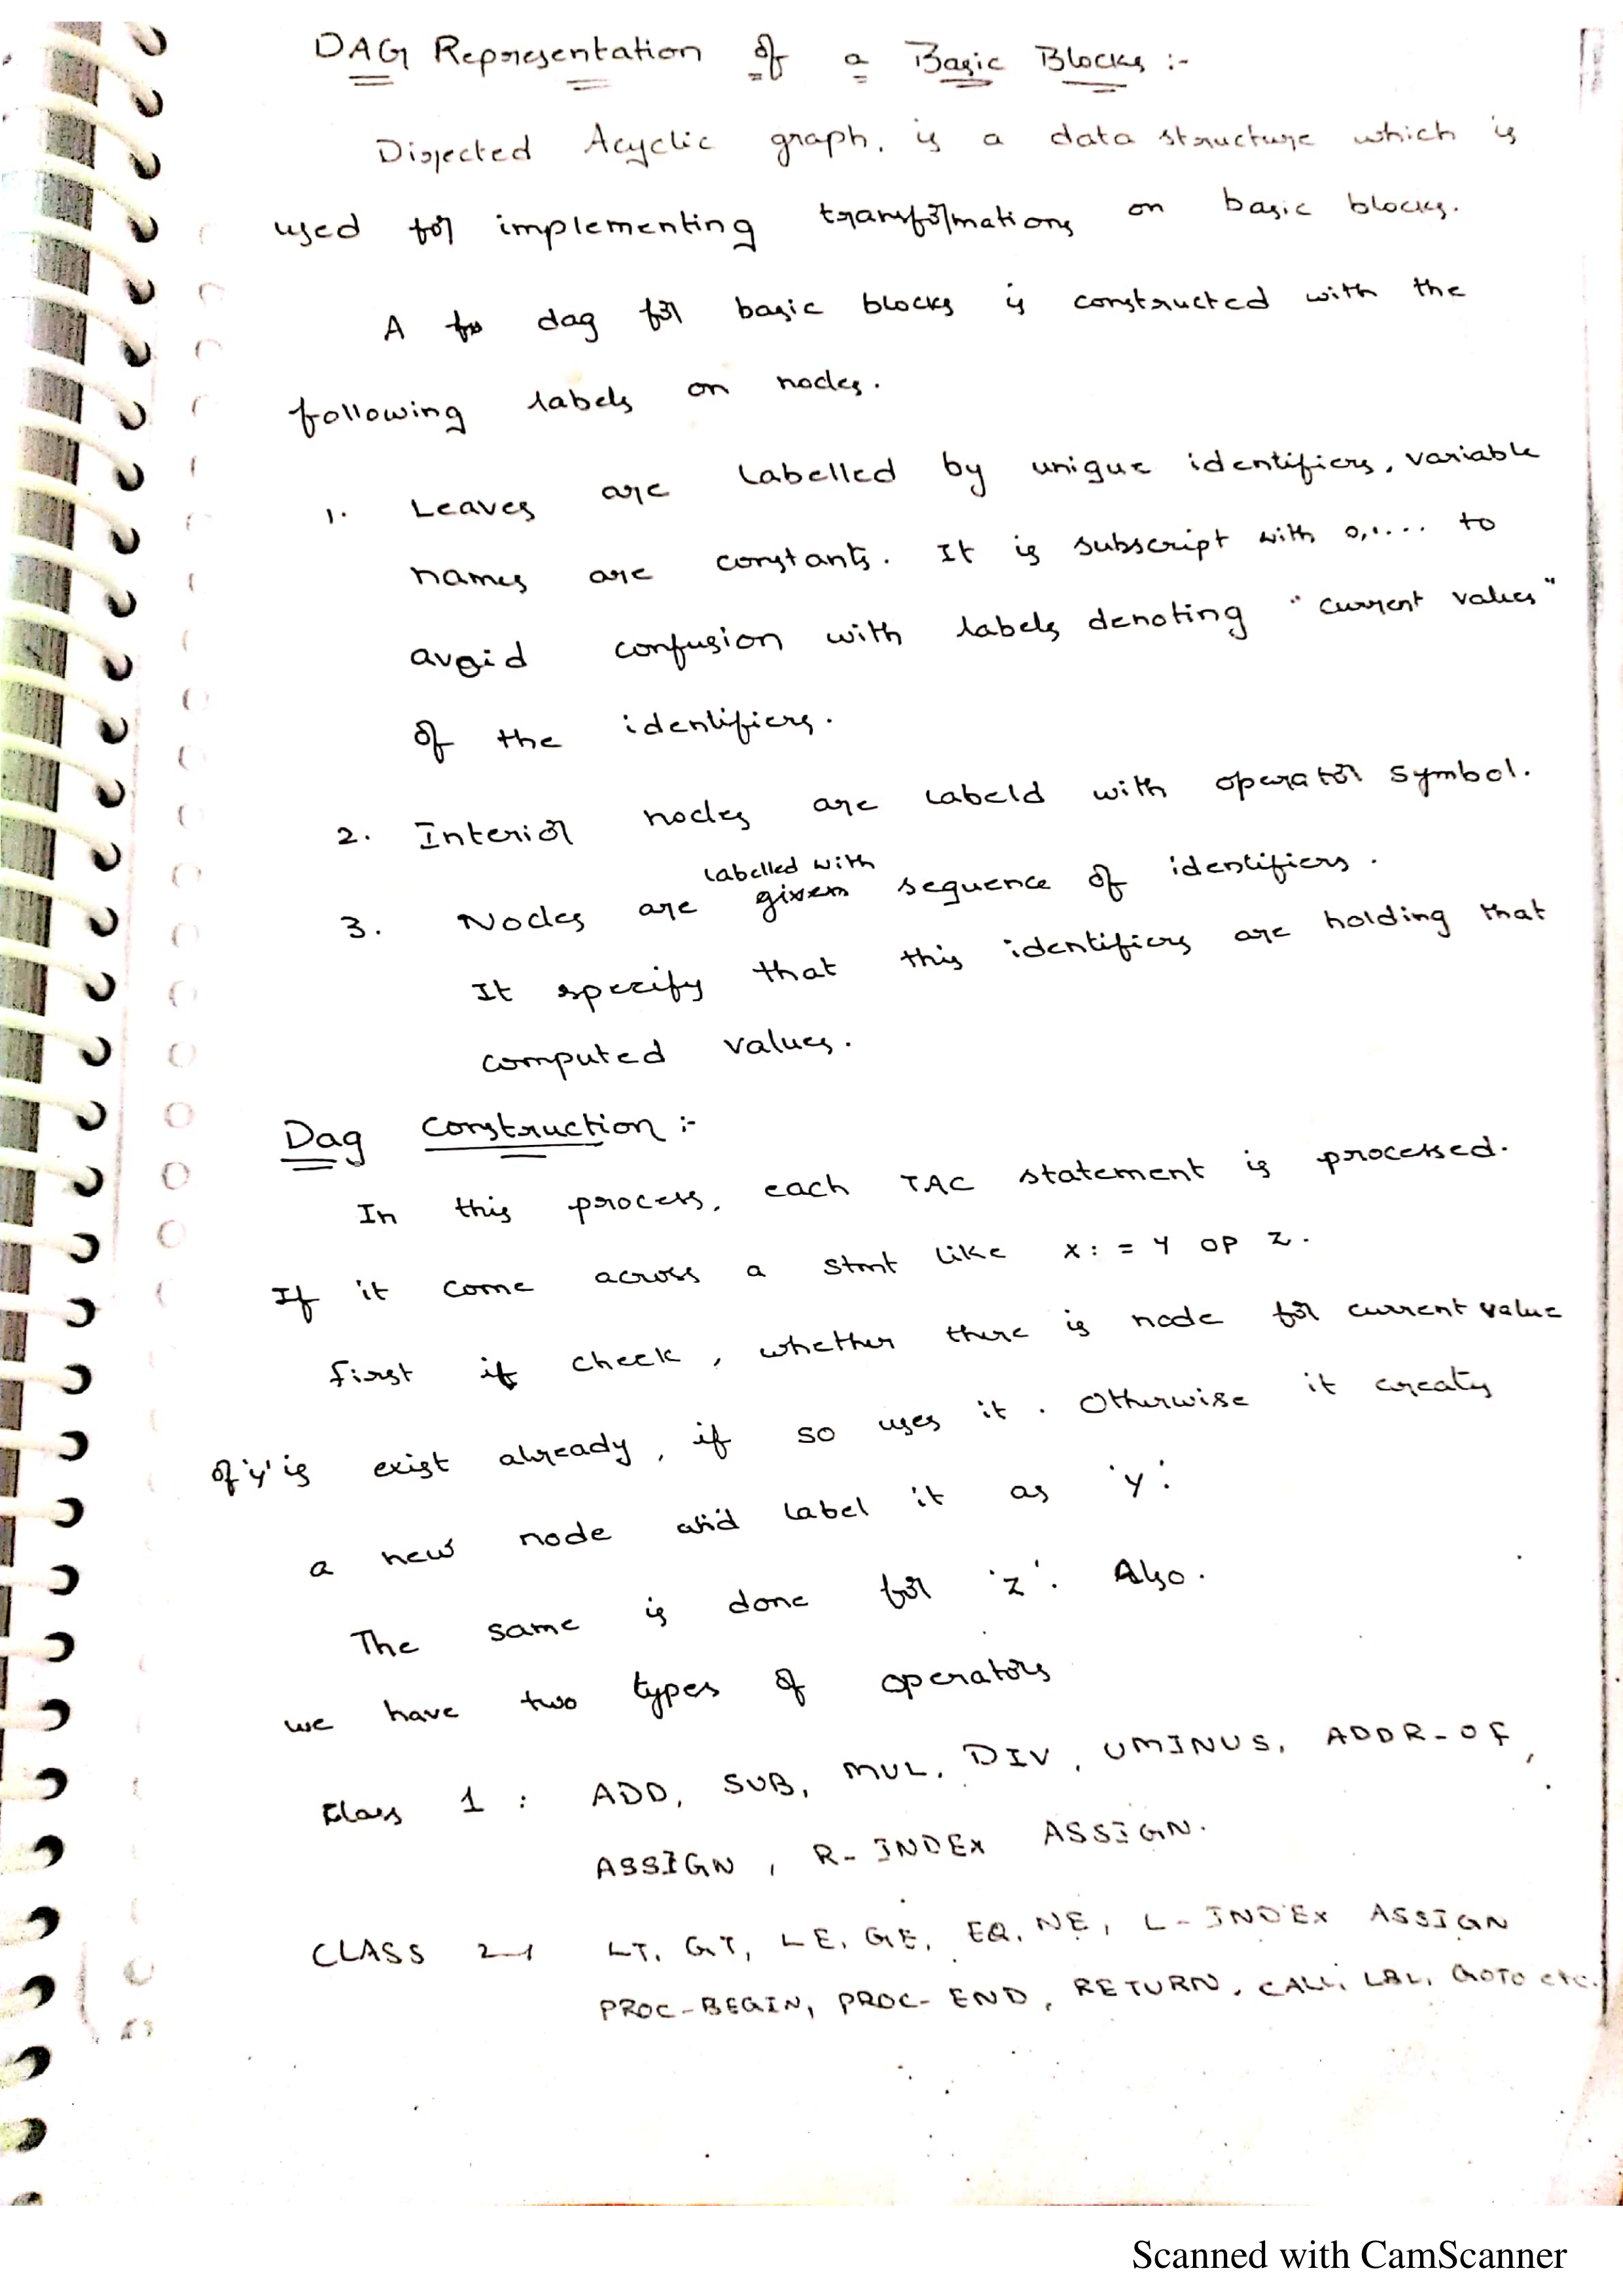 DAG Representation of a Basic Blocks :-
Directed Acyclic graph, is a data structure which is
used for implementing transformations on basic blocks.
A dag for basic blocks is constructed with the
following labels on nodes.
1. Leaves are labelled by unique identifiers, variable
names are constants. It is subscript with 0,1.... to
avoid confusion with labels denoting "current values"
of the identifiers.
2. Interior nodes are labeld with operator symbol.
labelled with
3. Nodes are given sequence of identifiers.
It specify that this identifiers are holding that
computed values.
Dag Construction :-
In this process, each TAC statement is processed.
If it come across a stmt like x := y op z.
first it check, whether there is node for current value
of 'y' is exist already, if so uses it. Otherwise it creates
a new node and label it as 'y'.
The same is done for 'z'. Also.
we have two types of operators
Class 1 : ADD, SUB, MUL, DIV, UMINUS, ADDR-OF,
ASSIGN, R-INDEX ASSIGN.
CLASS 2 LT, GT, LE, GE, EQ, NE, L-INDEX ASSIGN
PROC-BEGIN, PROC-END, RETURN, CALL, LBL, GOTO etc.
Scanned with CamScanner